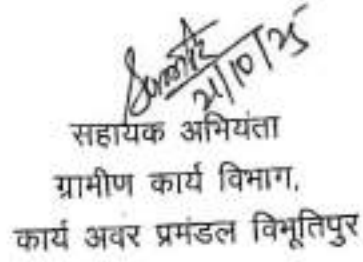 21/10/25
सहायक अभियंता
ग्रामीण कार्य विभाग,
कार्य अवर प्रमंडल विभूतिपुर